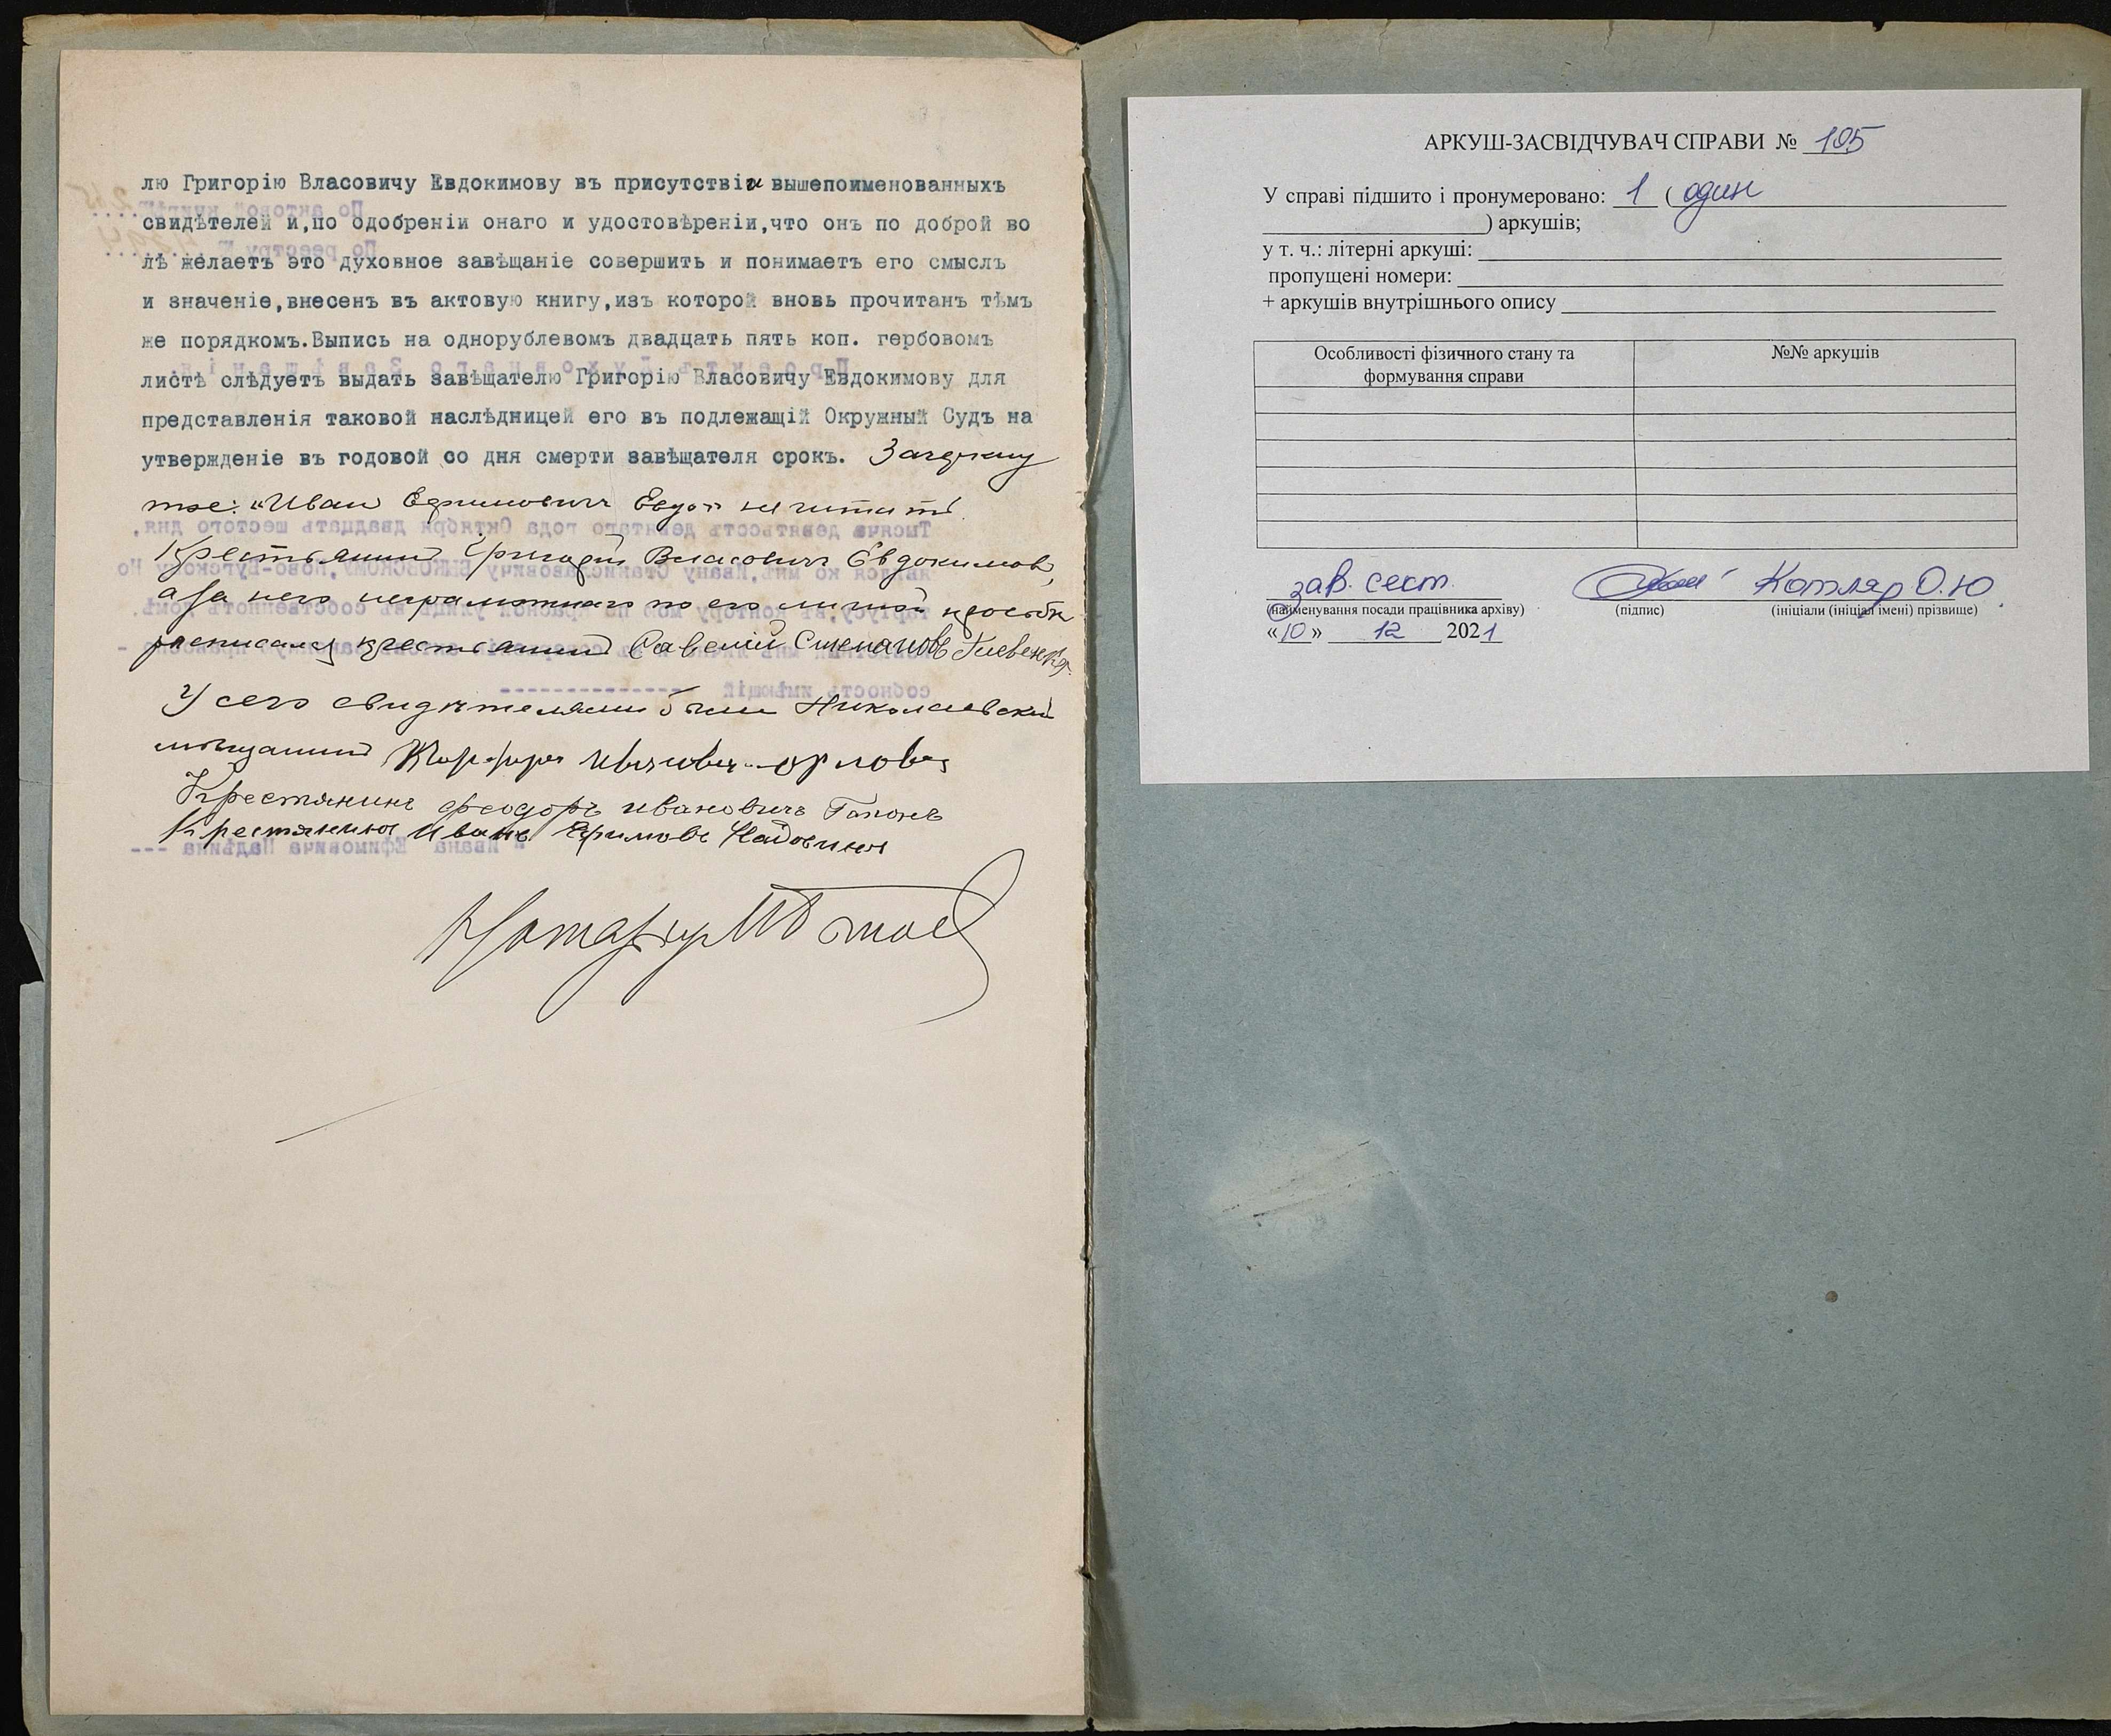 лю Григорію Власовичу Евдокимову въ присутствіи вышепоименованныхъ
свидѣтелей и,по одобреніи онаго и удостовѣреніи,что онъ по доброй во
лѣ желаетъ это духовное завѣщаніе совершить и понимаетъ его смыслъ
и значеніе,внесенъ въ актовую книгу,изъ которой вновь прочитанъ тѣмъ
же порядкомъ.Выпись на однорублевомъ двадцать пять коп. гербовомъ
листѣ слѣдуетъ выдать завѣщателю Григорію Власовичу Евдокимову для
представленія таковой наслѣдницей его въ подлежащій Окружный Судъ на
утвержденіе въ годовой со дня смерти завѣщателя срокъ. Зачеркну
тое: "Иван Ефимович Евдо" не читать.
Крестьянин Григорій Власович Євдокимов,
а за него неграмотнаго по его личной просьбѣ
росписался крестьянин Савелій Степановъ
У сего свидѣтелями были Николаевский
мѣщанин Орловъ
Крестянинъ Феодоръ Ивановичъ Гапонъ
Крестянинъ Иванъ Ефимовъ
Нотариус
АРКУШ-ЗАСВІДЧУВАЧ СПРАВИ № 105
У справі підшито і пронумеровано: 1 ( один
) аркушів;
у т. ч.: літерні аркуші:
пропущені номери:
+ аркушів внутрішнього опису
Особливості фізичного стану та №№ аркушів
формування справи
зав. сект. Котляр О.Ю.
(найменування посади працівника архіву) (підпис) (ініціали (ініціал імені) прізвище)
«10» 12 2021